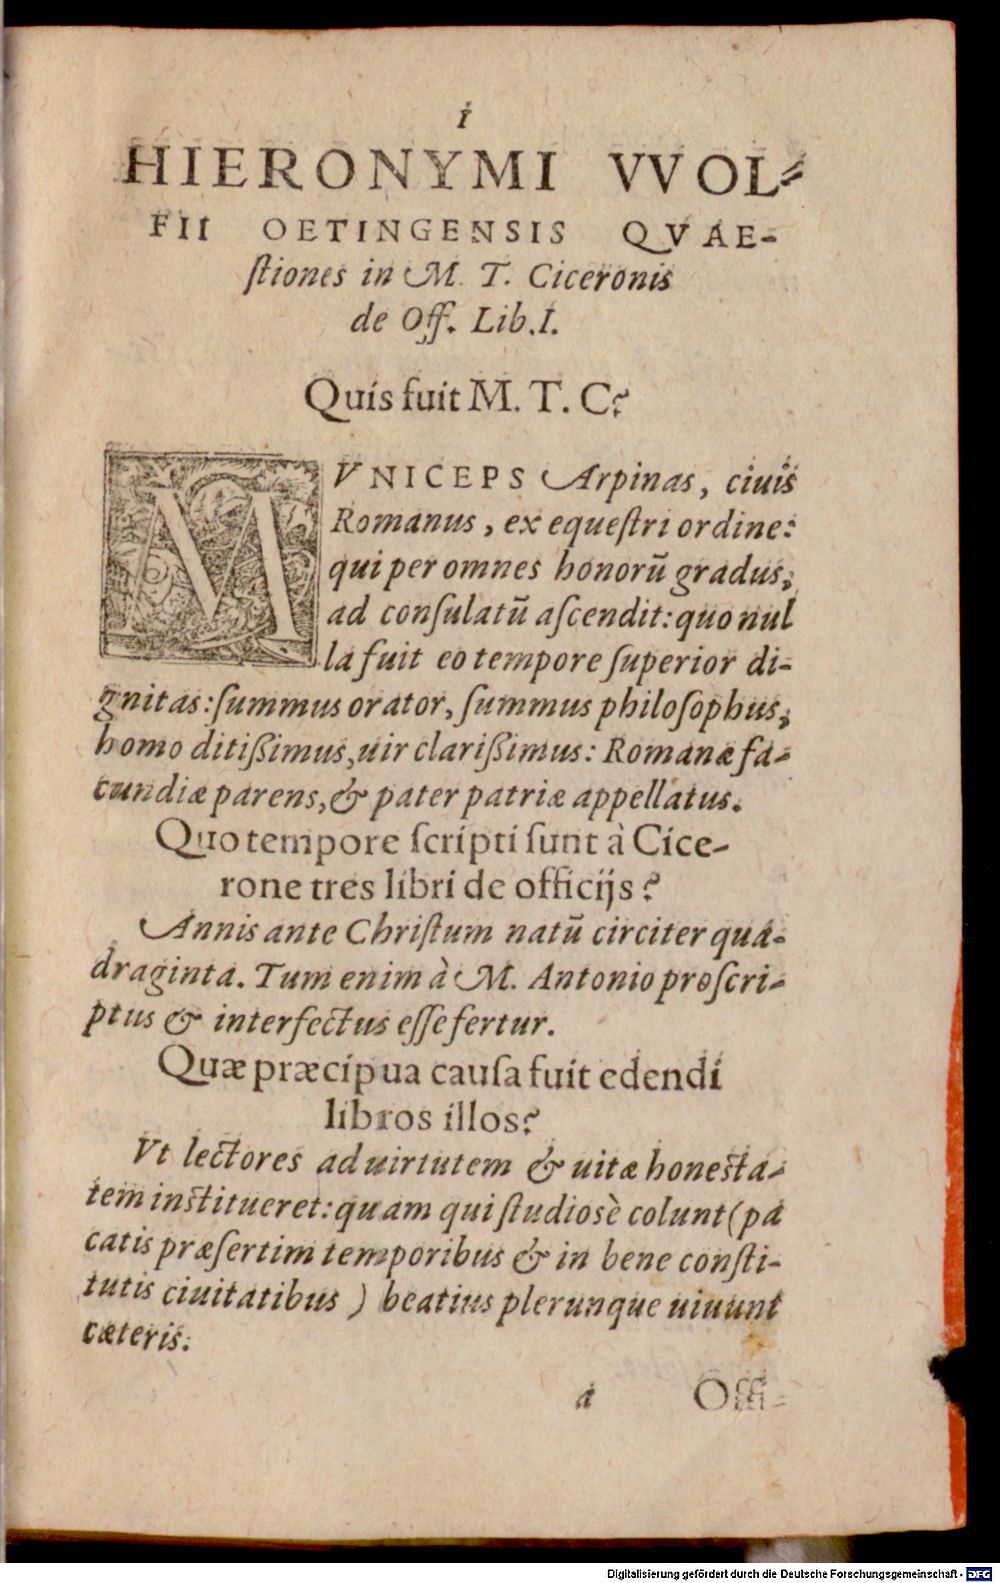 i
HIERONYMI VVOL-
FII OETINGENSIS QVAE-
ſtiones in M. T. Ciceronis
de Off. Lib. I.
Quis fuit M. T. C?
MVNICEPS Arpinas, ciuis
Romanus, ex equeſtri ordine:
qui per omnes honorū gradus,
ad conſulatū aſcendit: quo nul
la fuit eo tempore ſuperior di-
gnitas: ſummus orator, ſummus philoſophus,
homo ditißimus, uir clarißimus: Romanæ fa-
cundiæ parens, & pater patriæ appellatus.
Quo tempore ſcripti ſunt à Cice-
rone tres libri de officijs?
Annis ante Chriſtum natū circiter qua-
draginta. Tum enim à M. Antonio proſcri-
ptus & interfectus eſſe fertur.
Quæ præcipua cauſa fuit edendi
libros illos?
Vt lectores ad uirtutem & uitæ honesta-
tem institueret: quam qui ſtudiosè colunt (pa
catis præſertim temporibus & in bene conſti-
tutis ciuitatibus) beatius plerunque uiuunt
cæteris.
a Offi-
Digitalisierung gefördert durch die Deutsche Forschungsgemeinschaft - DFG